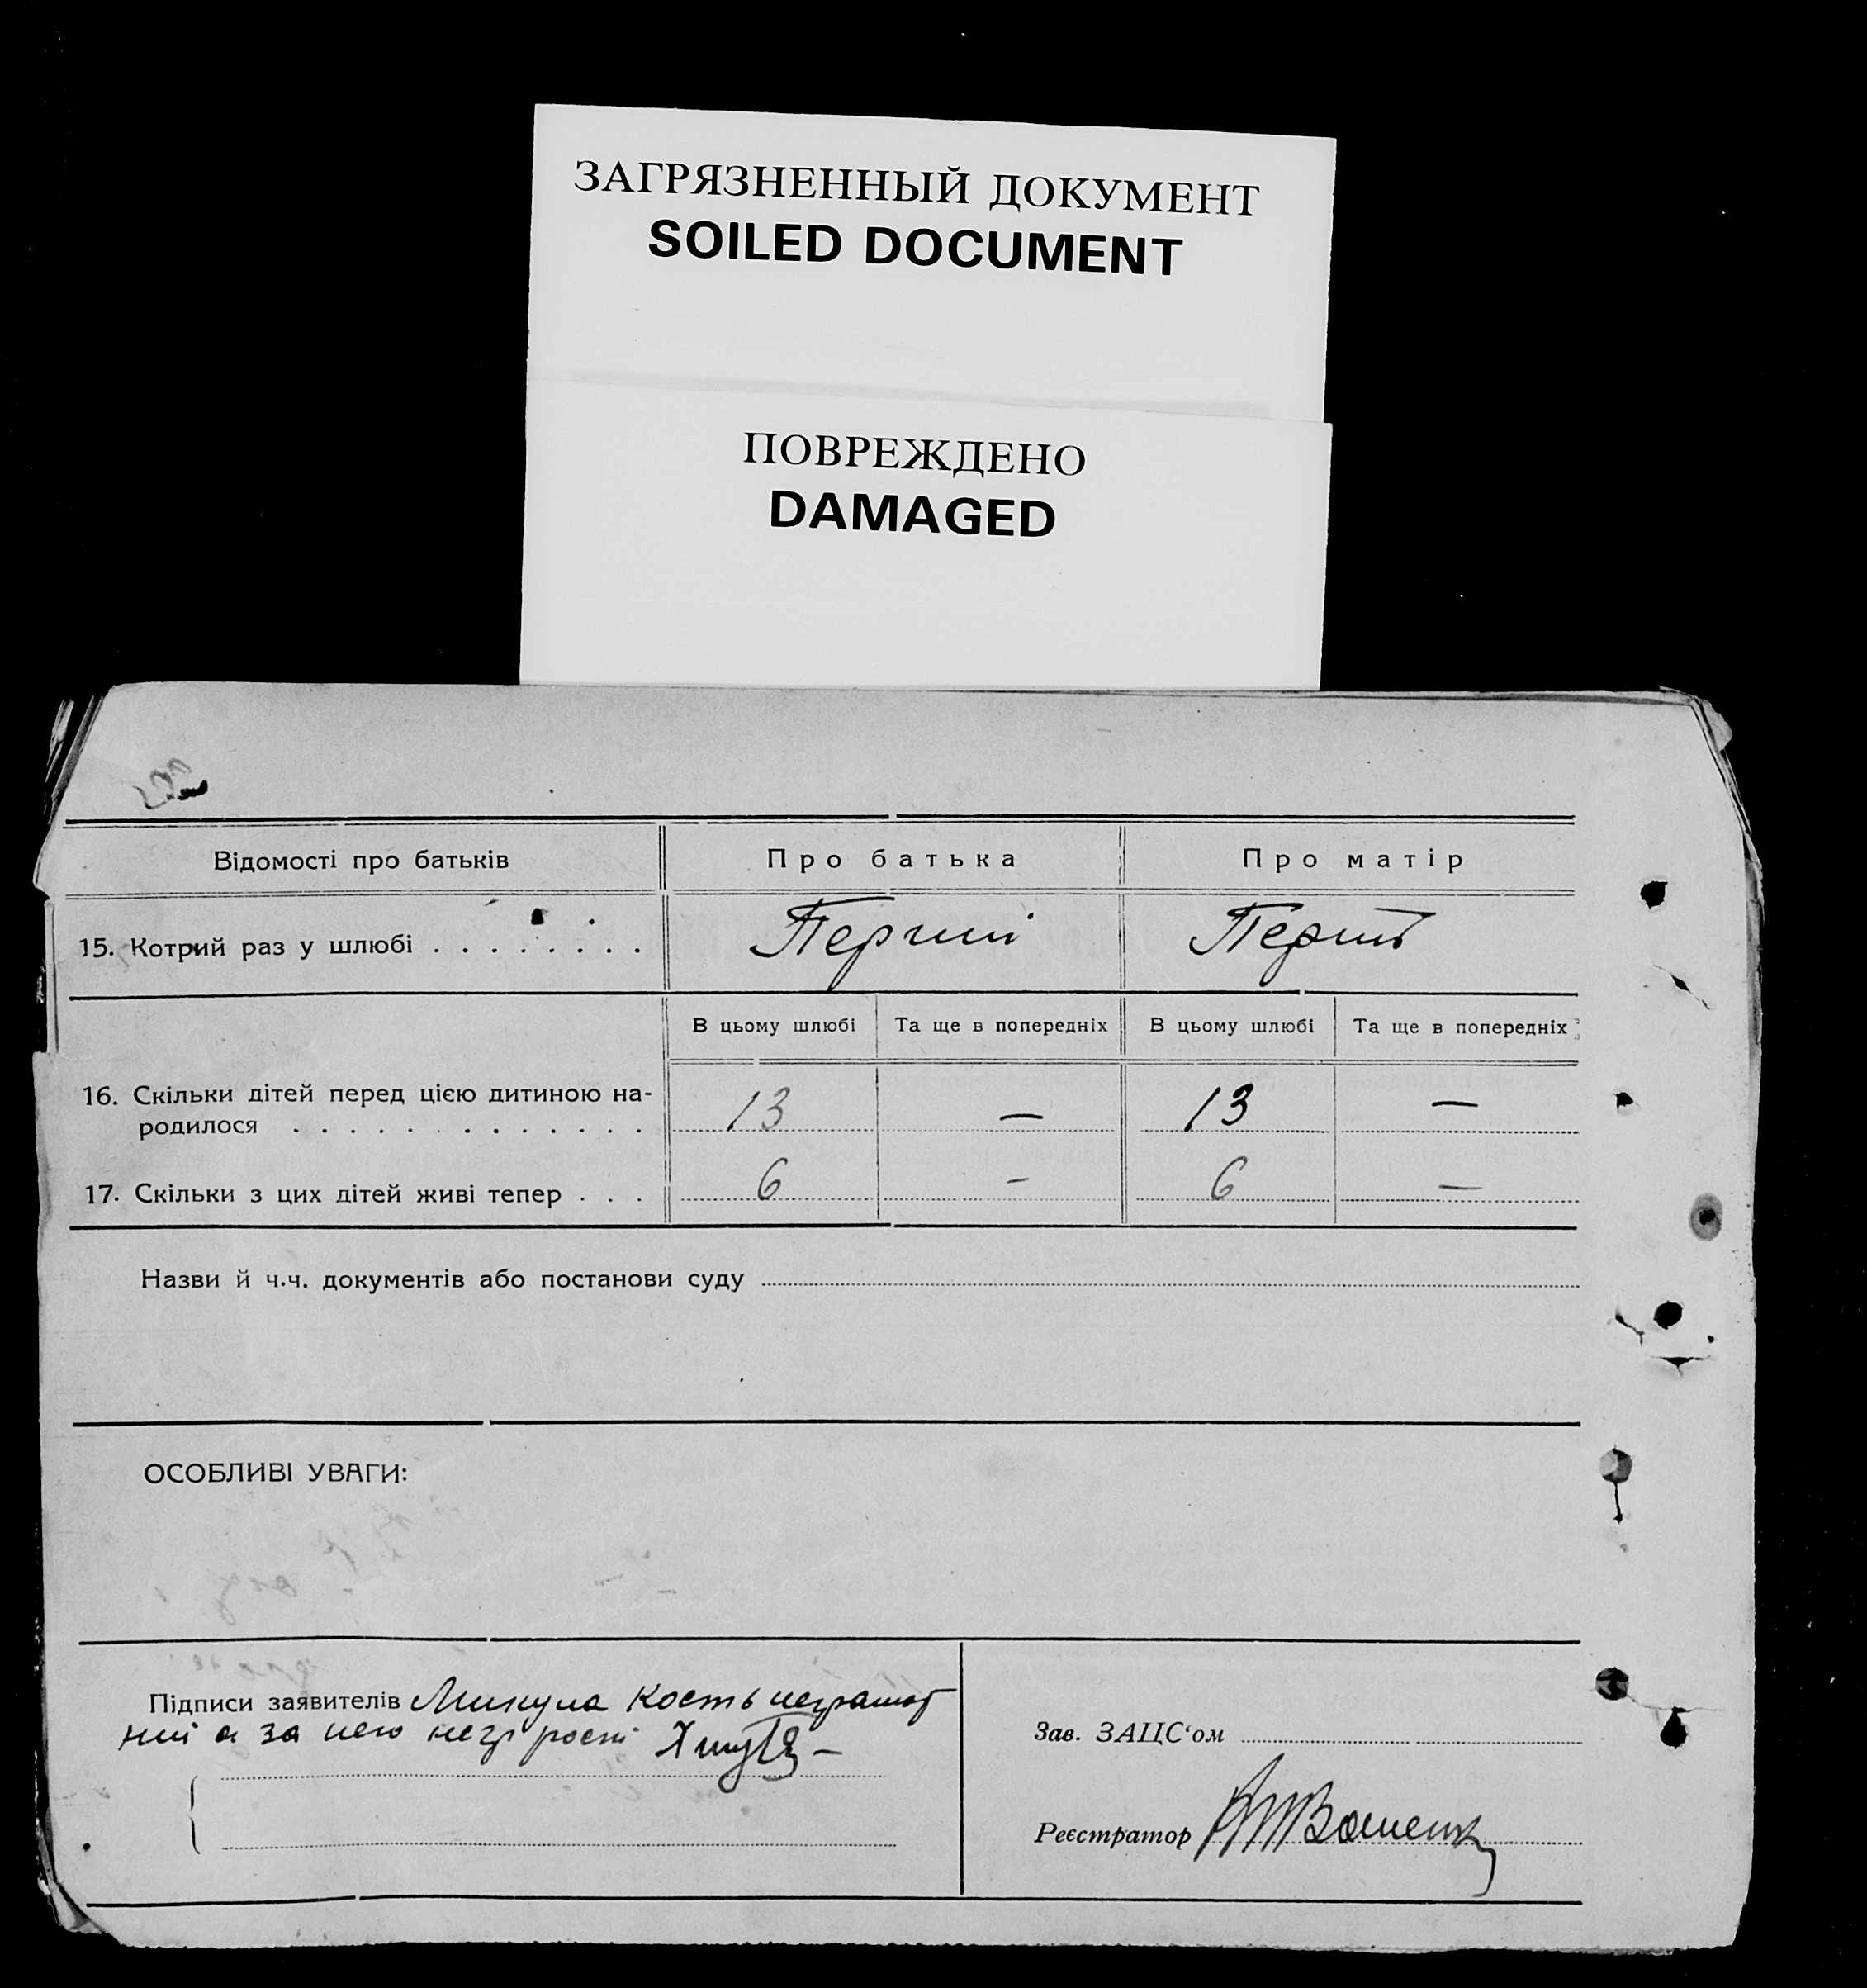 ЗАГРЯЗНЕННЫЙ ДОКУМЕНТ
SOILED DOCUMENT
ПОВРЕЖДЕНО
DAMAGED
Відомості про батьків Про батька Про матір
15. Котрий раз у шлюбі . . . . . . . . Перший Перший
В цьому шлюбі Та ще в попередніх В цьому шлюбі Та ще в попередніх
16. Скільки дітей перед цією дитиною на-
родилося . . . . . . . . . . . . . 13 — 13 —
17. Скільки з цих дітей живі тепер . . . 6 - 6 —
Назви й ч.ч. документів або постанови суду
ОСОБЛИВІ УВАГИ:
Підписи заявителів Микула Кость неграмот
ний а за него
Зав. ЗАЦС‘ом
Реєстратор